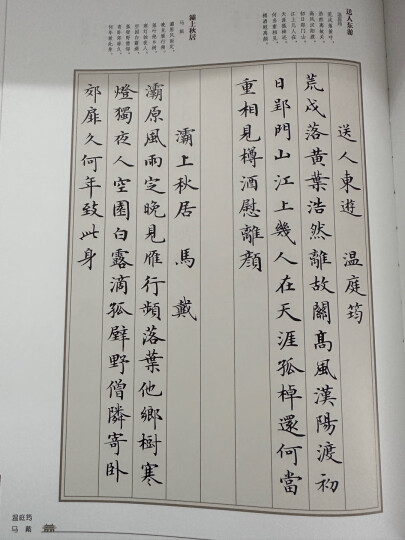 送人东游
温庭筠
荒戍落黄叶，
浩然离故关。
高风汉阳渡，
初日郢门山。
江上几人在，
天涯孤棹还。
何当重相见，
樽酒慰离颜。
灞上秋居
马戴
灞原风雨定，
晚见雁行频。
落叶他乡树，
寒灯独夜人。
空园白露滴，
孤壁野僧邻。
寄卧郊扉久，
何年致此身。
送人東遊 温庭筠
荒戍落黄葉浩然離故關髙風漢陽渡初
日郢門山江上幾人在天涯孤棹還何當
重相見樽酒慰離顔
灞上秋居 馬戴
灞原風雨定晚見雁行頻落葉他鄉樹寒
燈獨夜人空園白露滴孤壁野僧隣寄卧
郊扉久何年致此身
温庭筠
马戴